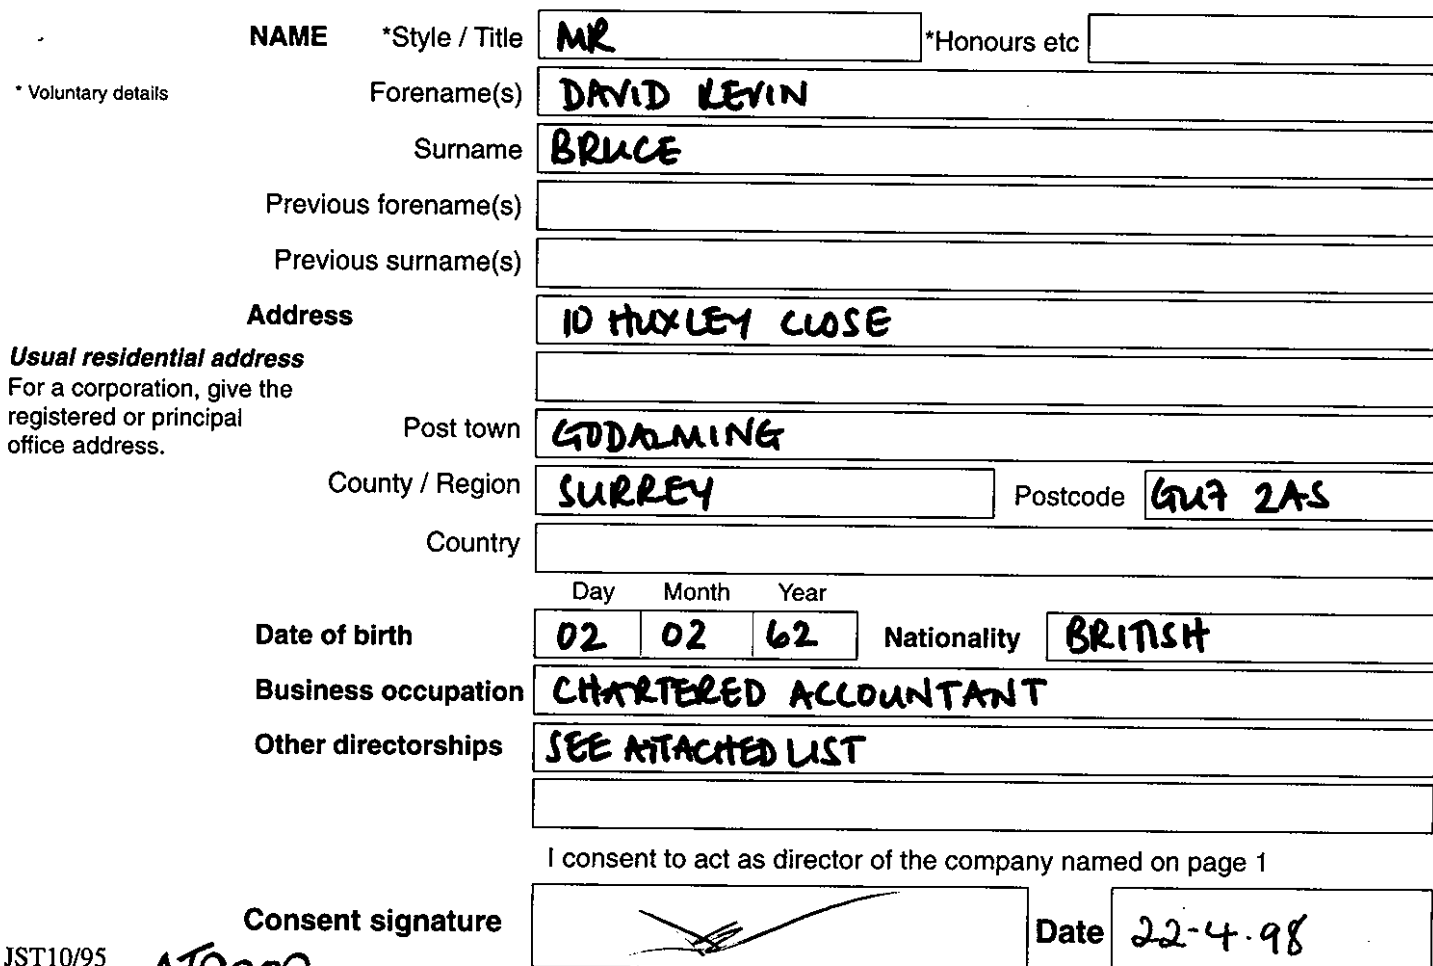 NAME *Style / Title MR *Honours etc
* Voluntary details Forename(s) DAVID KEVIN
Surname BRUCE
Previous forename(s)
Previous surname(s)
Address 10 HUXLEY CLOSE
Usual residential address
For a corporation, give the
registered or principal
office address.
Post town GODALMING
County / Region SURREY Postcode GU7 2AS
Country
Day Month Year
Date of birth 02 02 62 Nationality BRITISH
Business occupation CHARTERED ACCOUNTANT
Other directorships SEE ATTACHED LIST
I consent to act as director of the company named on page 1
Consent signature Date 22-4.98
JST10/95